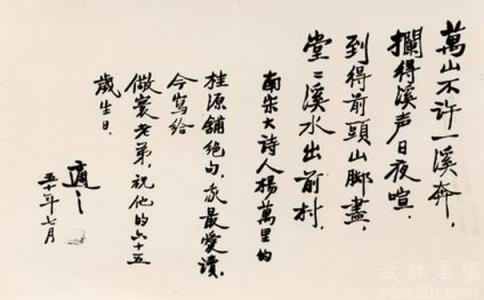 萬山不许一溪奔，
攔得溪声日夜喧．
到得前頭山脚盡，
堂〻溪水出前村．
南宋大诗人楊萬里的
桂源舖絶句，我最愛读，
今寫给
儆寰老弟，祝他的六十五
歲生日．
適之
五十年七月
武林軍事
www.5011.net